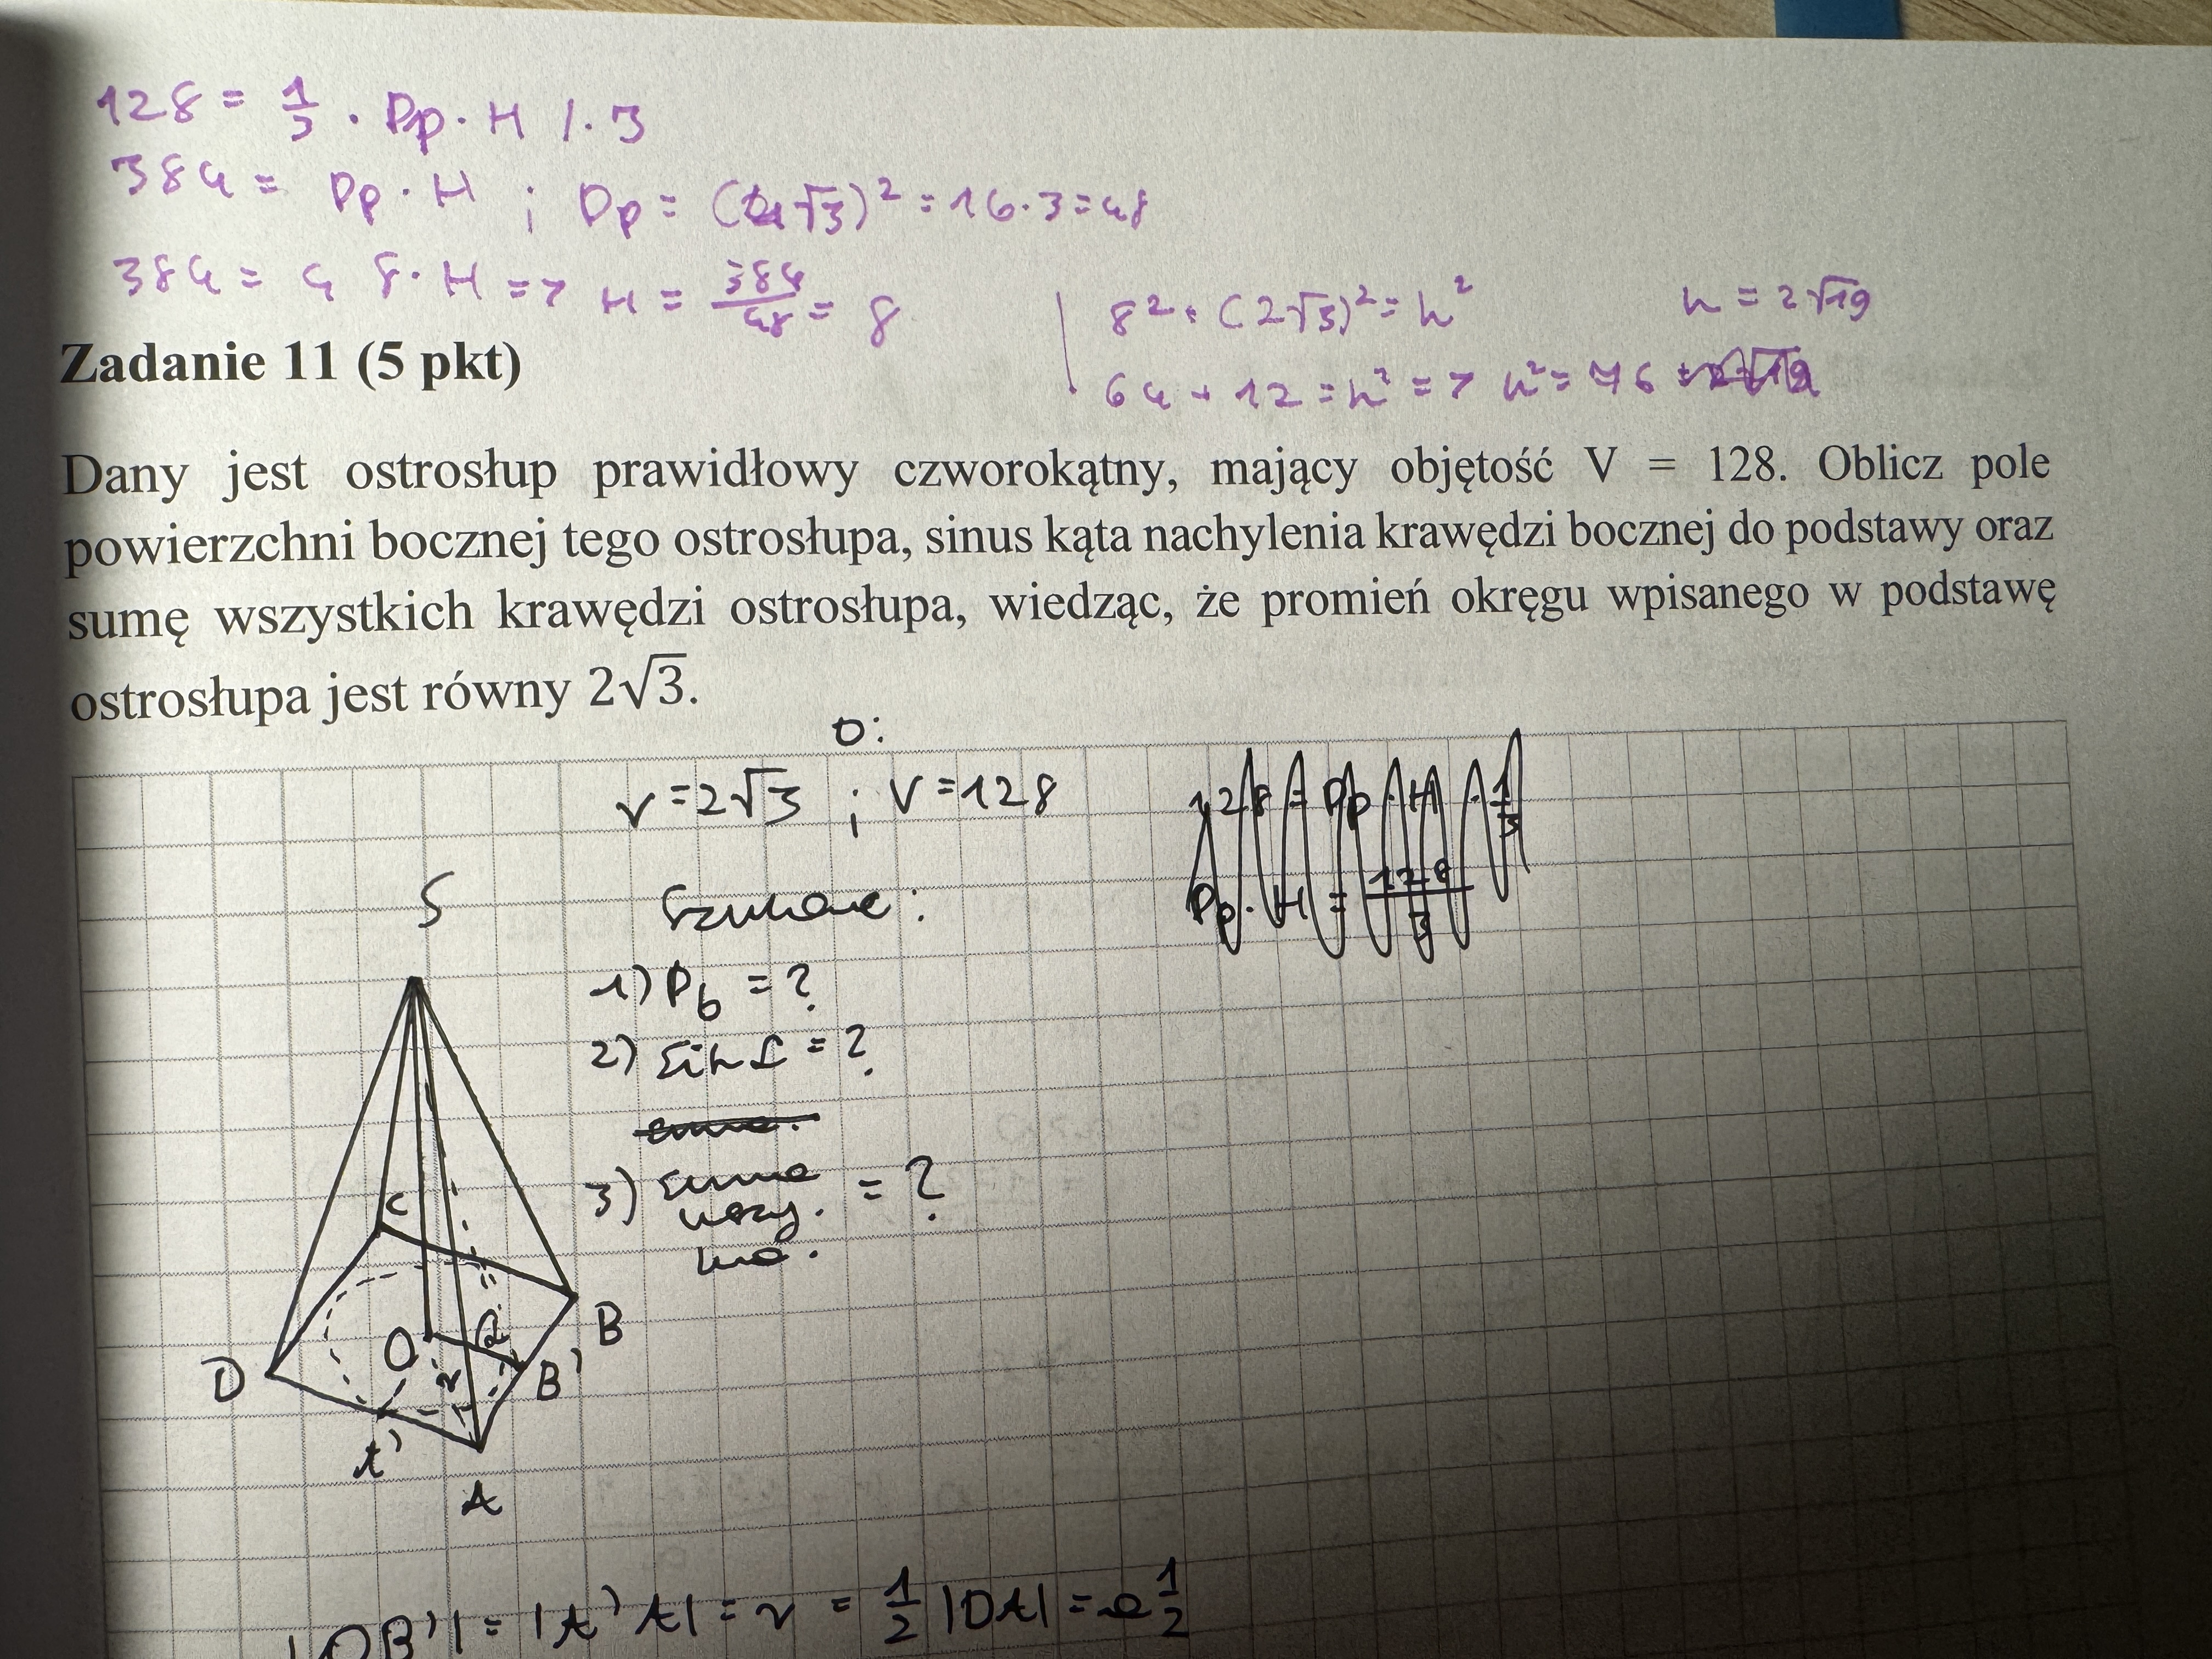 128 = 1/3 · Pp · H / · 3
384 = Pp · H ; Pp = (4√3)² = 16·3 = 48
384 = 48 · H => H = 384/48 = 8
8² + (2√3)² = h²
h = 2√19
64 + 12 = h² => h² = 76
Zadanie 11 (5 pkt)
Dany jest ostrosłup prawidłowy czworokątny, mający objętość V = 128. Oblicz pole
powierzchni bocznej tego ostrosłupa, sinus kąta nachylenia krawędzi bocznej do podstawy oraz
sumę wszystkich krawędzi ostrosłupa, wiedząc, że promień okręgu wpisanego w podstawę
ostrosłupa jest równy 2√3.
D:
r = 2√3 ; V = 128
128 = Pp · H · 1/3
Pp · H = 128/3
S
Szukane:
1) Pb = ?
2) sin α = ?
3) suma = ?
C
B
O
D
r
B'
A'
A
|OB'| = |A'A| = r = 1/2 |DA| = a 1/2